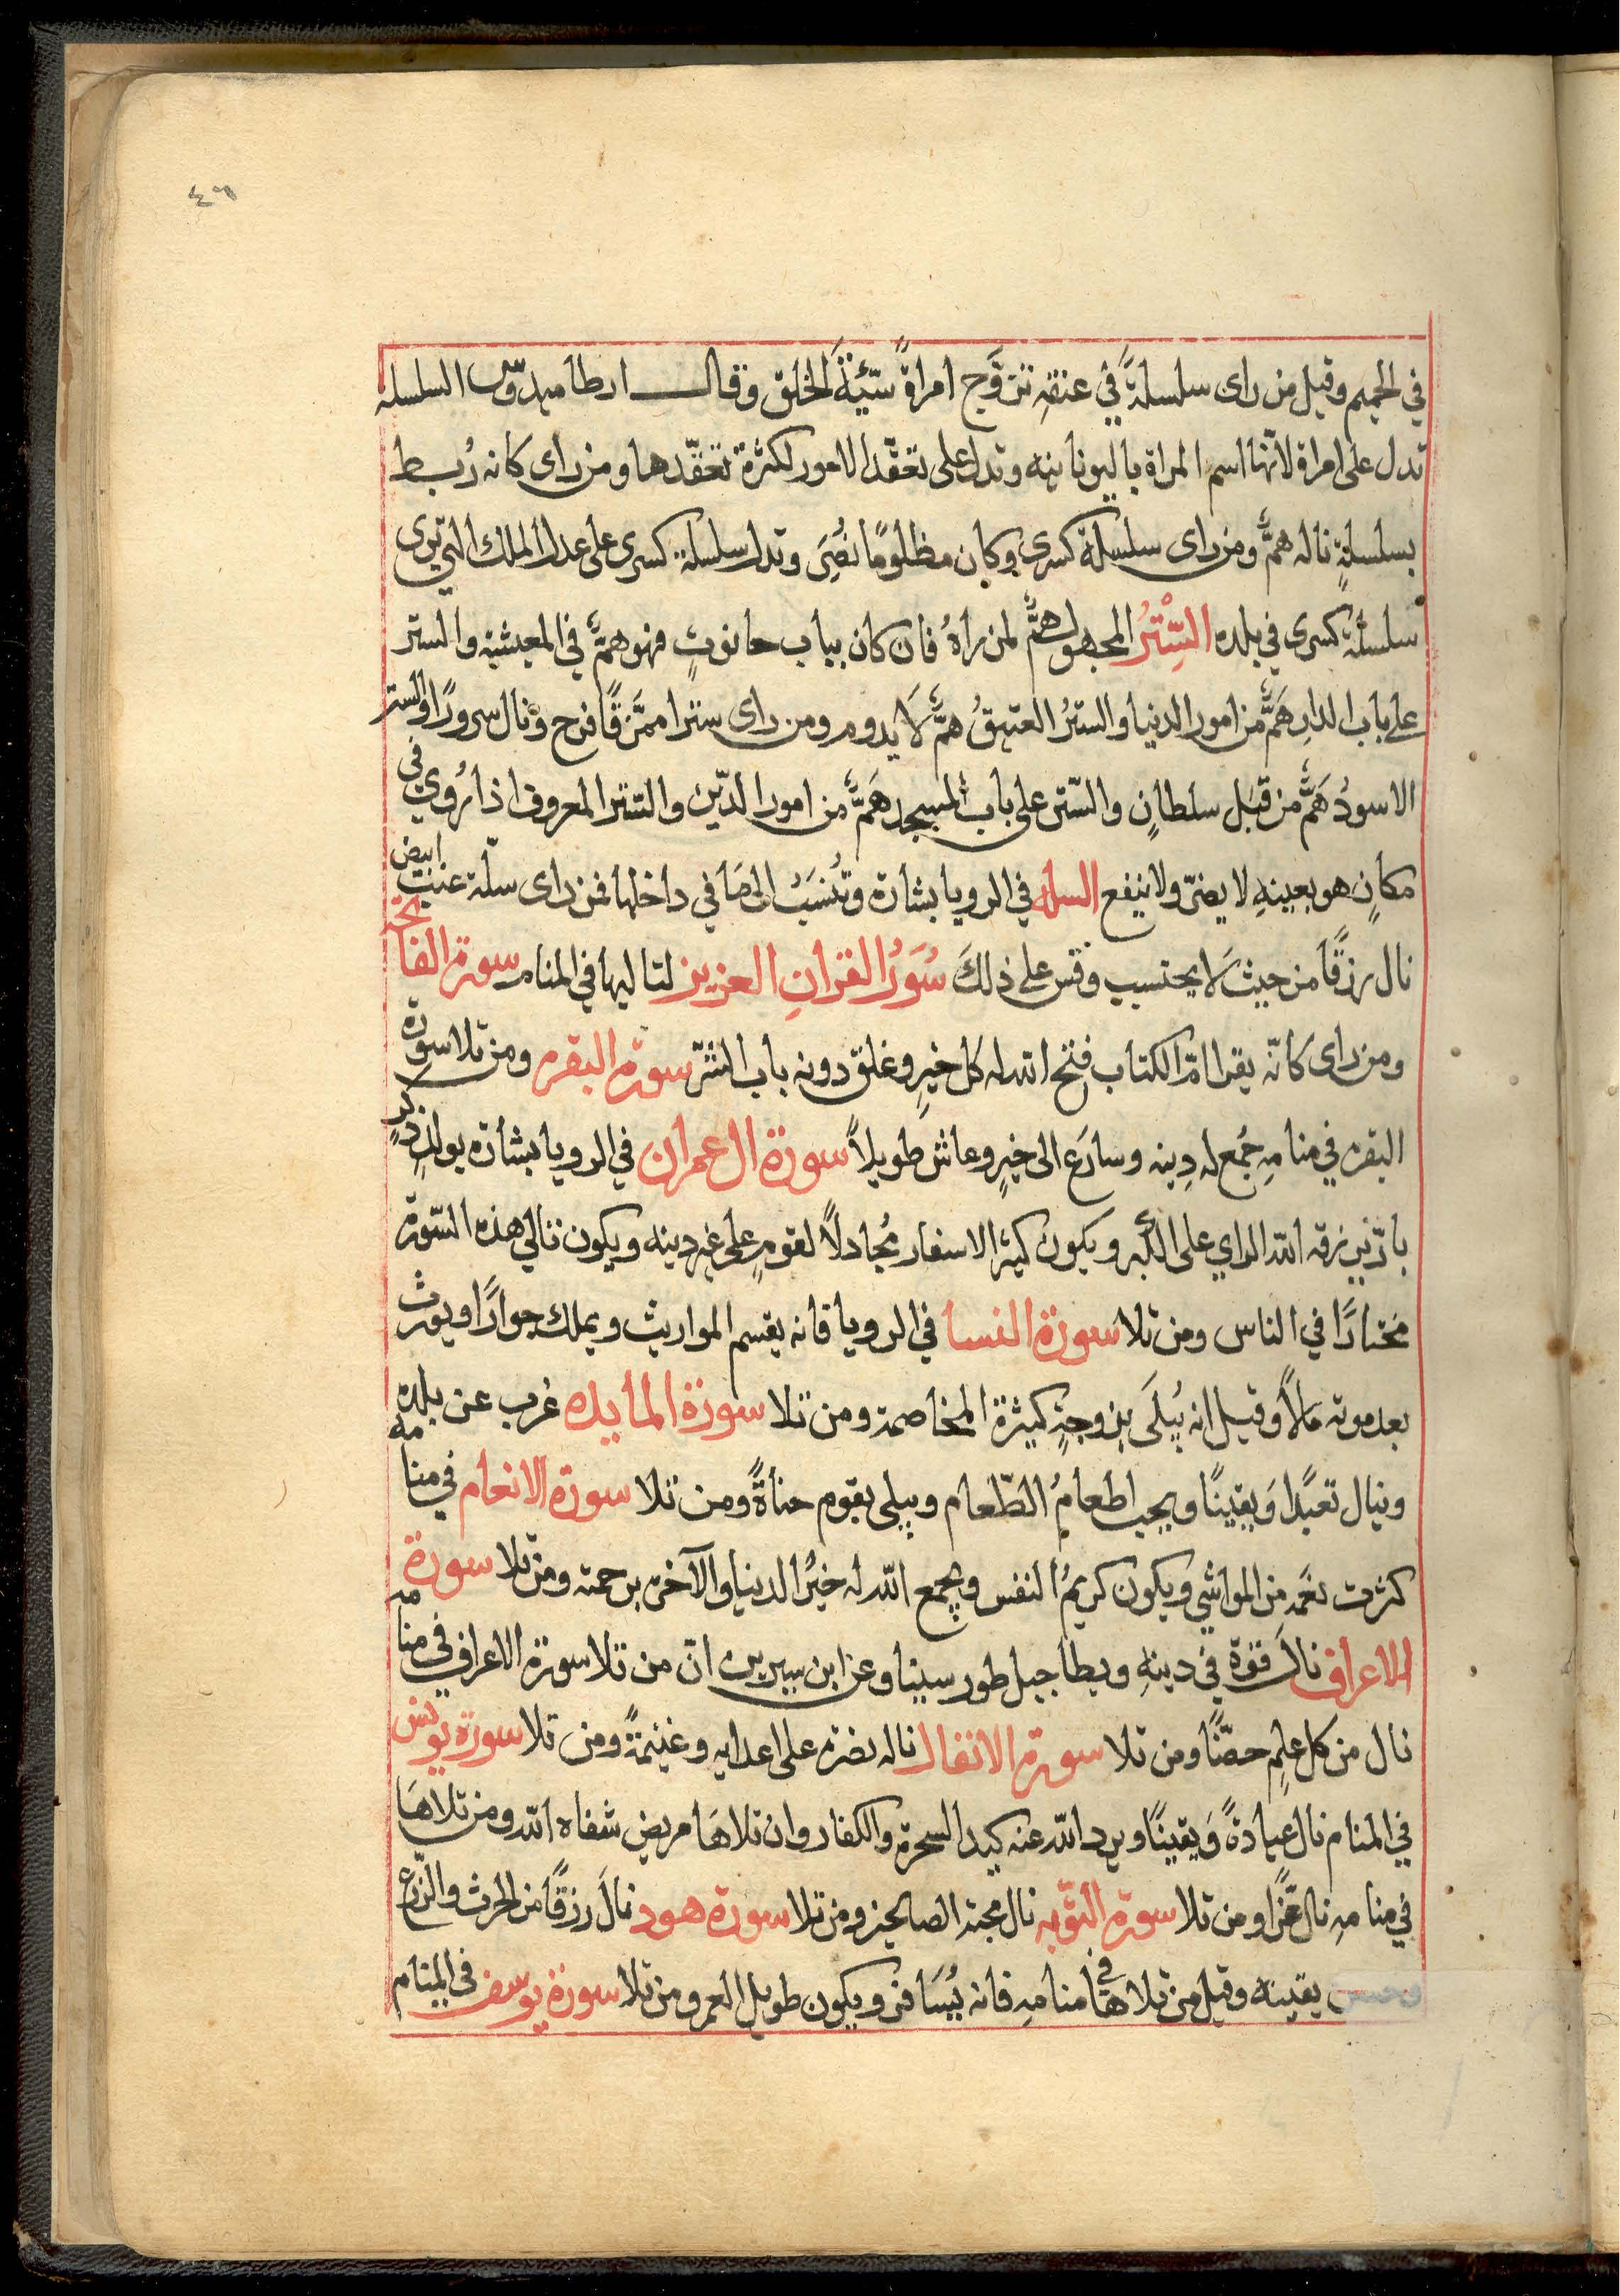 ٤٦
في الجحيم وقيل من راى سلسلةً في عنقهِ تزوَّج امراةً سَيّئةَ الخلق وقال ارطاميدوس السلسله
تدل على امراة لانّها اسم المراة باليونانيه وتدل على تعقّد الامور لكثرة تعقّدها ومن راى كانه رُبط
بسلسلةٍ ناله همٌّ ومن راى سلسلة كسرى وكان مظلومًا نُصِرَ وتدل سلسلة كسرى على عدل الملك التي ترى
سلسلة كسرى في بلده السِّتْرُ المجهول همٌّ لمن راهُ فان كان بباب حانوتٍ فهو همٌّ في المعيشة والستر
على باب الدارِ هَمٌّ من امور الدنيا والسترُ العتيقُ همٌّ لا يدوم ومن راى سترا ممزَّقًا فرح ونال سرورًا والستر
الاسودُ هَمٌّ من قِبَل سلطانٍ والسّتر على باب المسجد هَمٌّ من امور الدّين والستر المعروف اذا رُوي في
مكانٍ هو بعينهِ لا يضرّ ولا ينفع السله في الرويا بشارة وتُنسَبُ الى مَا في داخلها فمن راى سلّة عنب ابيض
نال رزقًا من حيث لا يحتسب وقس على ذلكَ سُوَرُ القرانِ العزيز لتاليها في المنام سورة الفاتحة
ومن راى كانّه يقرا امّ الكتاب فتح الله له كل خيرٍ وغلق دونه باب الشرّ سورة البقره ومن تلا سورة
البقره في منامهِ جُمع له دِينه وسارَع الى خيرٍ وعاش طويلاً سورة ال عمران في الرويا بشارة بولدٍ ذكرٍ
بارّ يُرزقه الله الراي على الكبر ويكون كثير الاسفار مُجادلاً لقومٍ على غير دينه ويكون تالي هذه السّورة
مختارًا في الناس ومن تلا سورة النسا في الرويا فانه يقسم المواريث ويملك جوارًا ويورث
بعد موته مالاً وقيل انه يُبلَى بزوجةٍ كثيرة المخاصمة ومن تلا سورة المايده غرب عن بلده
وينال تعبًا وَيقينًا ويحب اطعامُ الطّعام ويبلى بقوم جفاةً ومن تلا سورة الانعام في منامه
كثرت نعَمه من المواشي ويكون كريمُ النفس ويجمع الله له خيرُ الدنيا والآخرة برحمته ومن تلا سورة
الاعراف نال قوة في دينهِ ويطا جبل طور سينا وعن ابن سيرين انّ من تلا سورة الاعراف في منامه
نال من كل علمٍ حصّنًا ومن تلا سورة الانفال ناله نصرة على اعدايه وغنيمةً ومن تلا سورة يونس
في المنام نال عبادةً وَيقينًا ويرد الله عنه كيد السحرة والكفار وان تلاهَا مريض شفاه الله ومن تلاهَا
في منامهِ نال عَزًّا ومن تلا سورة التوّبه نال محبة الصالحين ومن تلا سورة هود نالَ رزقًا من الحرث والزّرع
وحسن يقينه وقيل من تلاها في منامهِ فانه يُسَافر ويكون طويل العمر ومن تلا سورة يوسف في المنام